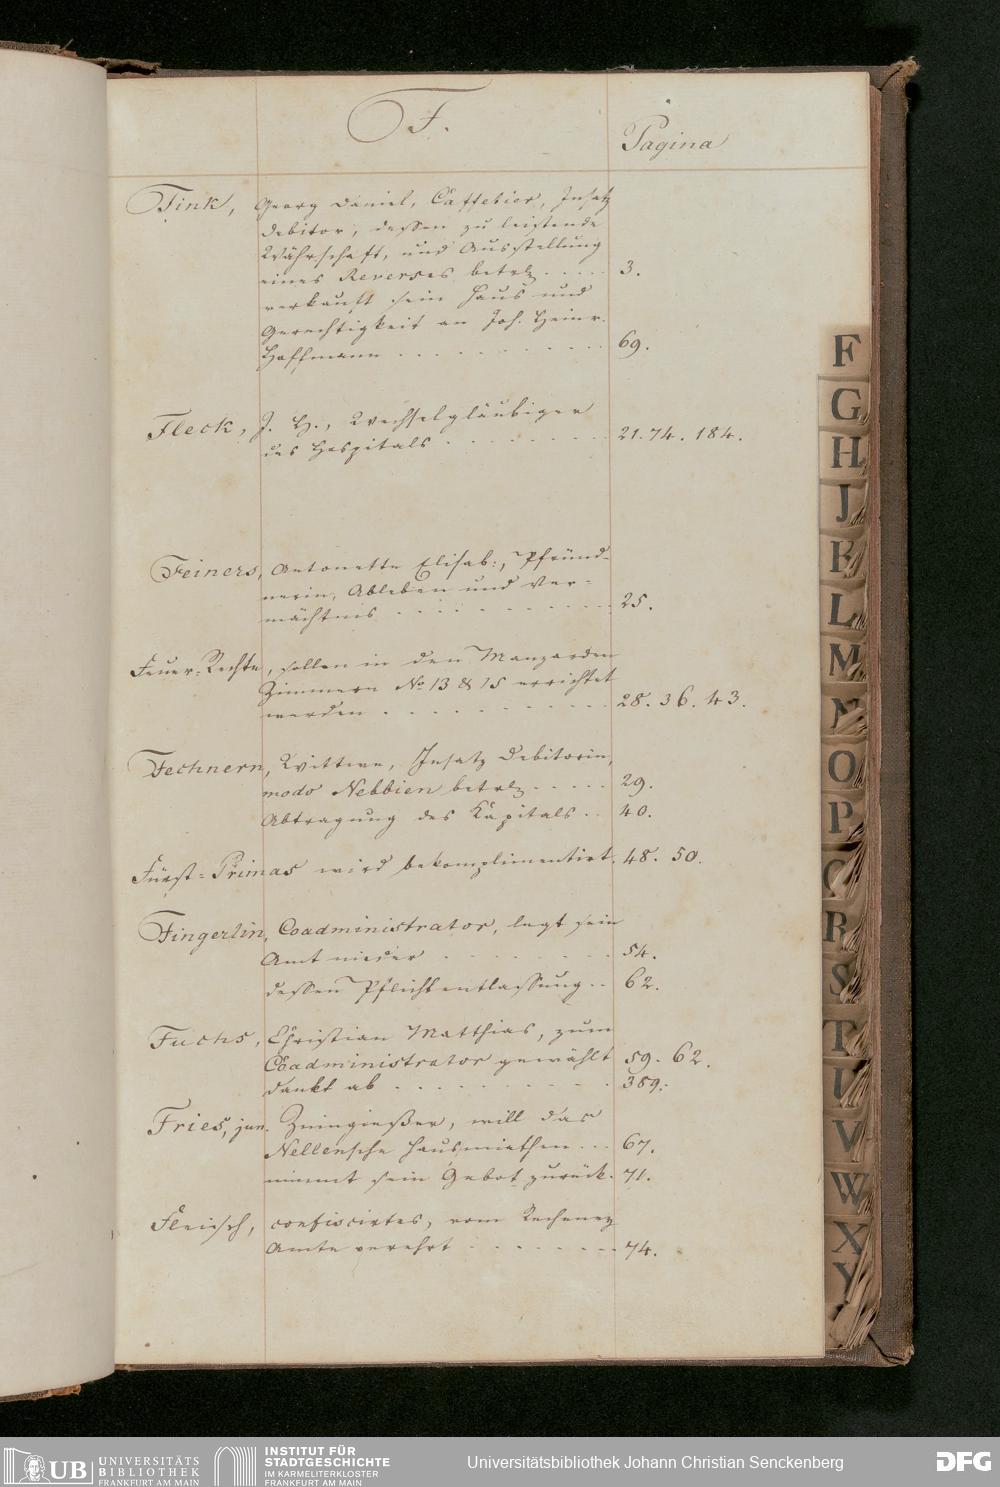 F.
Pagina
Fink, Georg Daniel, Caffetier, Insatz
debitor, dessen zu leistende
Währschaft, und Ausstellung
eines Reverses betrf. . . . . 3.
verkauft sein Haus und
Gerechtigkeit an Joh. Heinr.
Hoffmann . . . . . . . . . . 69.
Fleck, J. H., Wechselgläubiger
des Hospitals . . . . . . . . 21. 74. 184.
Feiners, Antonette Elisab:, Pfründ-
nerin, Ableben und Ver-
mächtnis . . . . . . . . . . . 25.
Feuer-Rechte, sollen in den Manzarden
Zimmern No. 13 & 15 errichtet
werden . . . . . . . . . . 28. 36. 43.
Fechnern, Wittwe, Insatz Debitorin,
modo Nebbien betrf. . . . . 29.
Abtragung des Kapitals . . 40.
Fürst-Primas wird bekomplimentirt. 48. 50.
Fingerlin, Coadministrator, legt sein
Amt nieder . . . . . . . . 54.
dessen Pflichtentlassung . . 62.
Fuchs, Christian Matthias, zum
Coadministrator gewählt 59. 62.
dankt ab . . . . . . . . . . 389.
Fries, jun. Zinngießer, will das
Nellensche Haus miethen . . . 67.
nimmt sein Gebot zurück. 71.
Fleisch, confiscirtes, vom Recheney
Amte verehrt . . . . . . . 74.
F
G
H
J
K
L
M
N
O
P
Q
R
S
T
U
V
W
X
Y
UB UNIVERSITÄTS
BIBLIOTHEK
FRANKFURT AM MAIN
INSTITUT FÜR
STADTGESCHICHTE
IM KARMELITERKLOSTER
FRANKFURT AM MAIN
Universitätsbibliothek Johann Christian Senckenberg
DFG